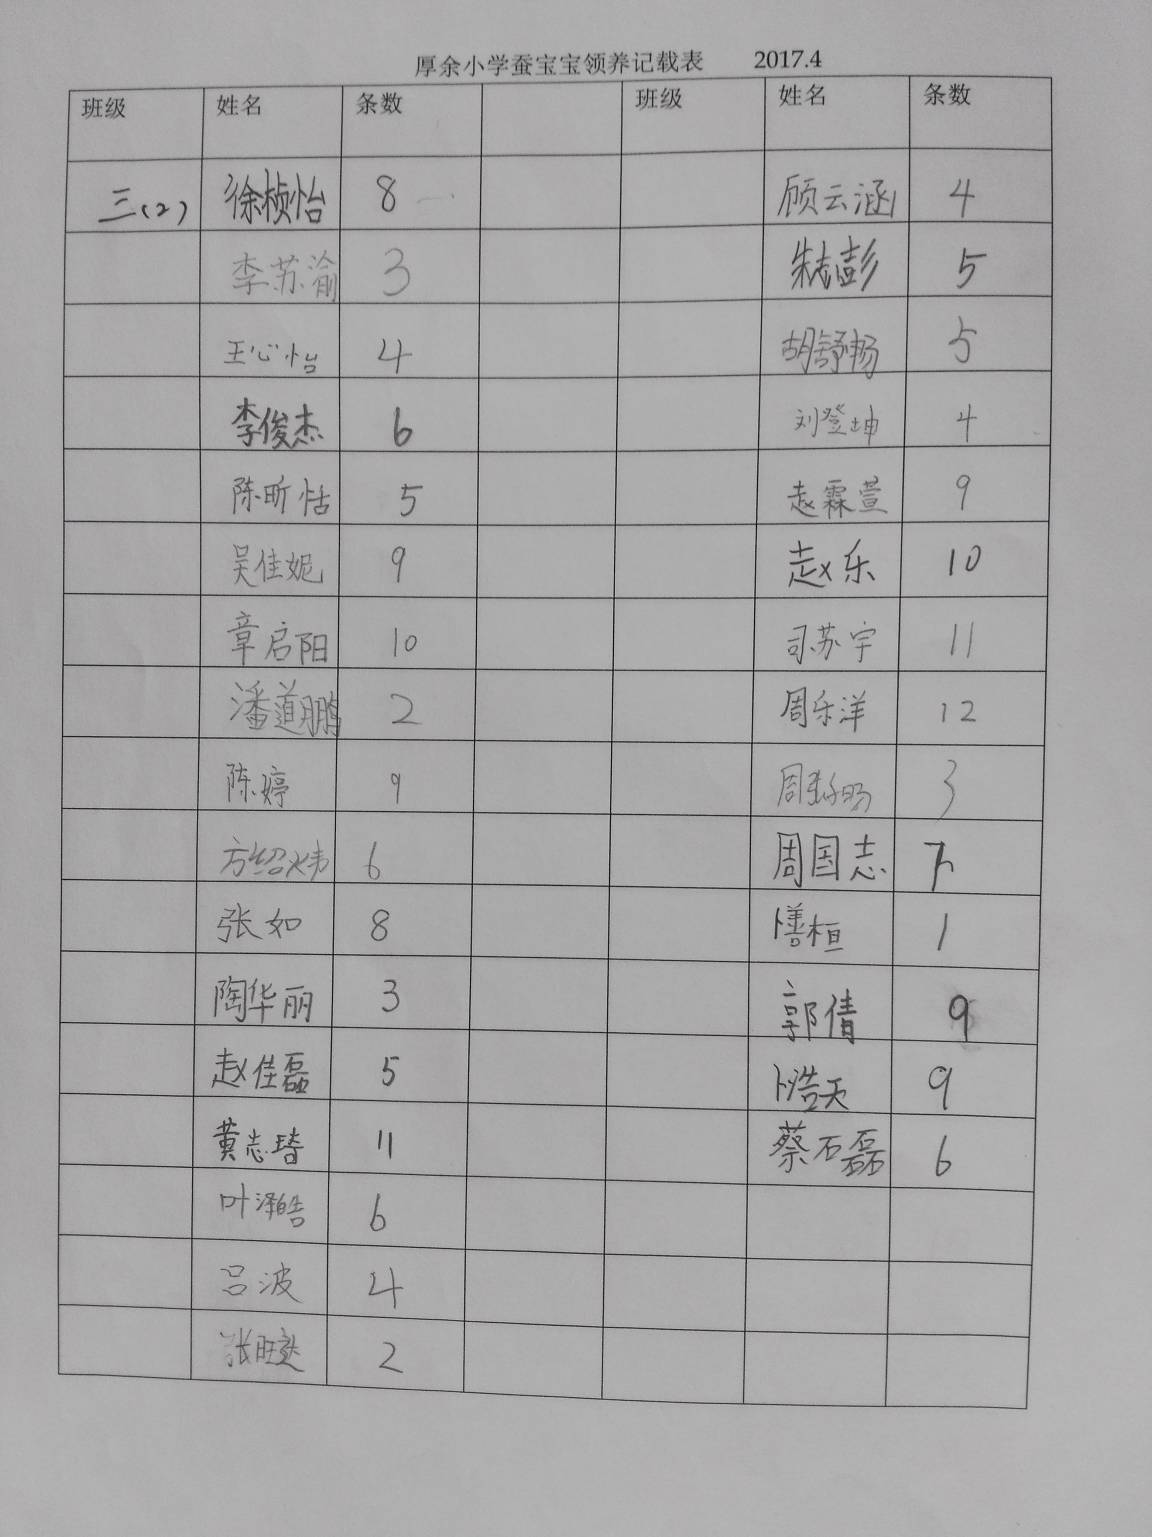 厚余小学蚕宝宝领养记载表 2017.4
班级 姓名 条数 班级 姓名 条数
三(2) 徐桢怡 8 顾云涵 4
李苏渝 3 朱志彭 5
王心怡 4 胡舒畅 5
李俊杰 6 刘登坤 4
陈昕恬 5 赵霖萱 9
吴佳妮 9 赵乐 10
章启阳 10 司苏宇 11
潘道鹏 2 周乐洋 12
陈婷 9 3
方绍炜 6 周国志 7
张如 8 1
陶华丽 3 郭倩 9
赵佳磊 5 卜浩天 9
黄志琦 11 蔡石磊 6
叶泽皓 6
吕波 4
2